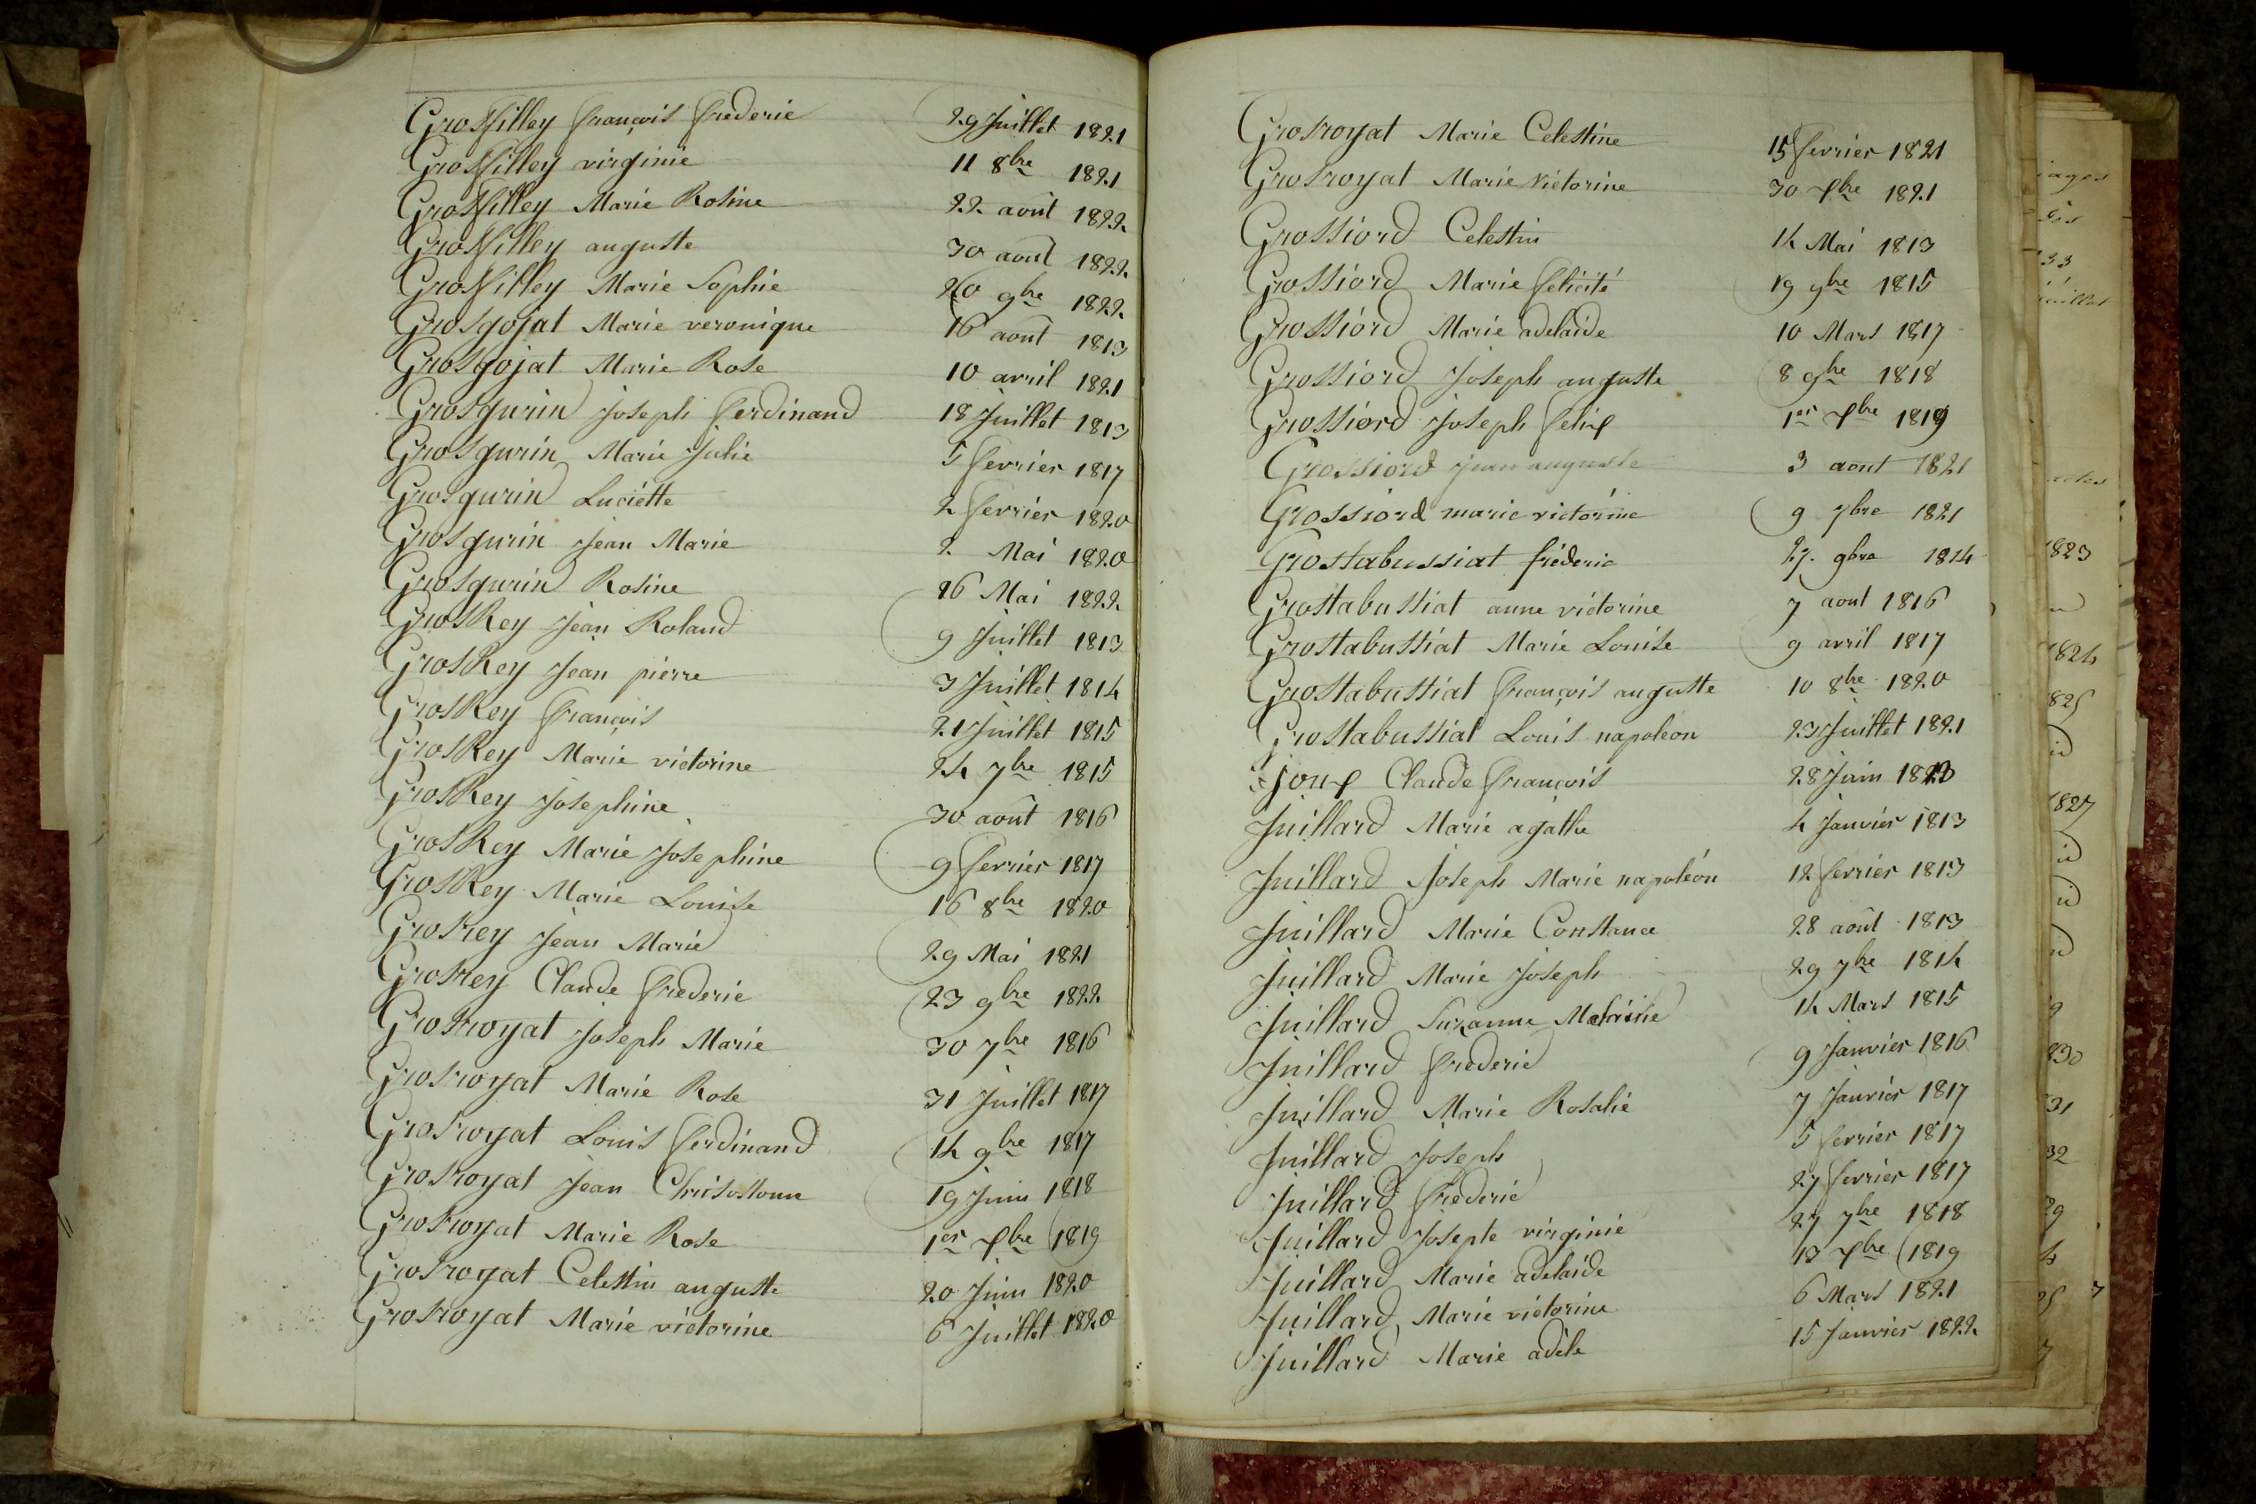 Grosfilley françois frederic 29 Juillet 1821
Grosfilley virginie 11 8bre 1821
Grosfilley Marie Rosine 22 août 1822
Grosfilley auguste 30 août 1822
Grosfilley Marie Sophie 20 9bre 1822
Grosgojat Marie veronique 16 août 1813
Grosgojat Marie Rose 10 avril 1821
Grosgurin Joseph ferdinand 18 Juillet 1813
Grosgurin Marie Julie 5 fevrier 1817
Grosgurin Luciette 2 fevrier 1820
Grosgurin Jean Marie 2 Mai 1820
Grosgurin Rosine 26 Mai 1822
GrosRey Jean Roland 9 Juillet 1813
GrosRey Jean pierre 3 Juillet 1814
GrosRey françois 21 Juillet 1815
GrosRey Marie victorine 24 7bre 1815
GrosRey Josephine 30 août 1816
GrosRey Marie Josephine 9 fevrier 1817
GrosRey Marie Louise 16 8bre 1820
Grosrey Jean Marie 29 Mai 1821
Grosrey Claude frederic 23 9bre 1822
Grosroyat Joseph Marie 30 7bre 1816
Grosroyat Marie Rose 31 Juillet 1817
Grosroyat Louis ferdinand 14 9bre 1817
Grosroyat Jean Chrisostome 19 Juin 1818
Grosroyat Marie Rose 1er Xbre 1819
Grosroyat Celestin auguste 20 Juin 1820
Grosroyat Marie victorine 6 Juillet 1820
Grosroyat Marie Celestine 15 fevrier 1821
Grosroyat Marie victorine 30 Xbre 1821
Grossiord Celestin 14 Mai 1813
Grossiord Marie felicité 19 9bre 1815
Grossiord Marie adelaide 10 Mars 1817
Grossiord Joseph auguste 8 9bre 1818
Grossiord Joseph felix 1er Xbre 1819
Grossiord jean auguste 3 aout 1821
Grossiord marie victorine 9 7bre 1821
Grostabussiat fréderic 27. 9bre 1814
Grostabussiat anne victorine 7 aout 1816
Grostabussiat Marie Louise 9 avril 1817
Grostabussiat françois auguste 10 8bre 1820
Grostabussiat Louis napoléon 23 Juillet 1821
Joux Claude françois 28 Juin 1823
Juillard Marie agathe 4 Janvier 1813
Juillard Joseph Marie napoléon 12 fevrier 1813
Juillard Marie Constance 28 août 1813
Juillard Marie Joseph 29 7bre 1814
Juillard Suzanne Melanie 14 Mars 1815
Juillard frederic 9 Janvier 1816
Juillard Marie Rosalie 7 Janvier 1817
Juillard Joseph 5 fevrier 1817
Juillard frederic 27 fevrier 1817
Juillard Josepte virginie 27 7bre 1818
Juillard Marie adelaide 13 Xbre 1819
Juillard Marie victorine 6 Mars 1821
Juillard Marie adèle 15 Janvier 1822